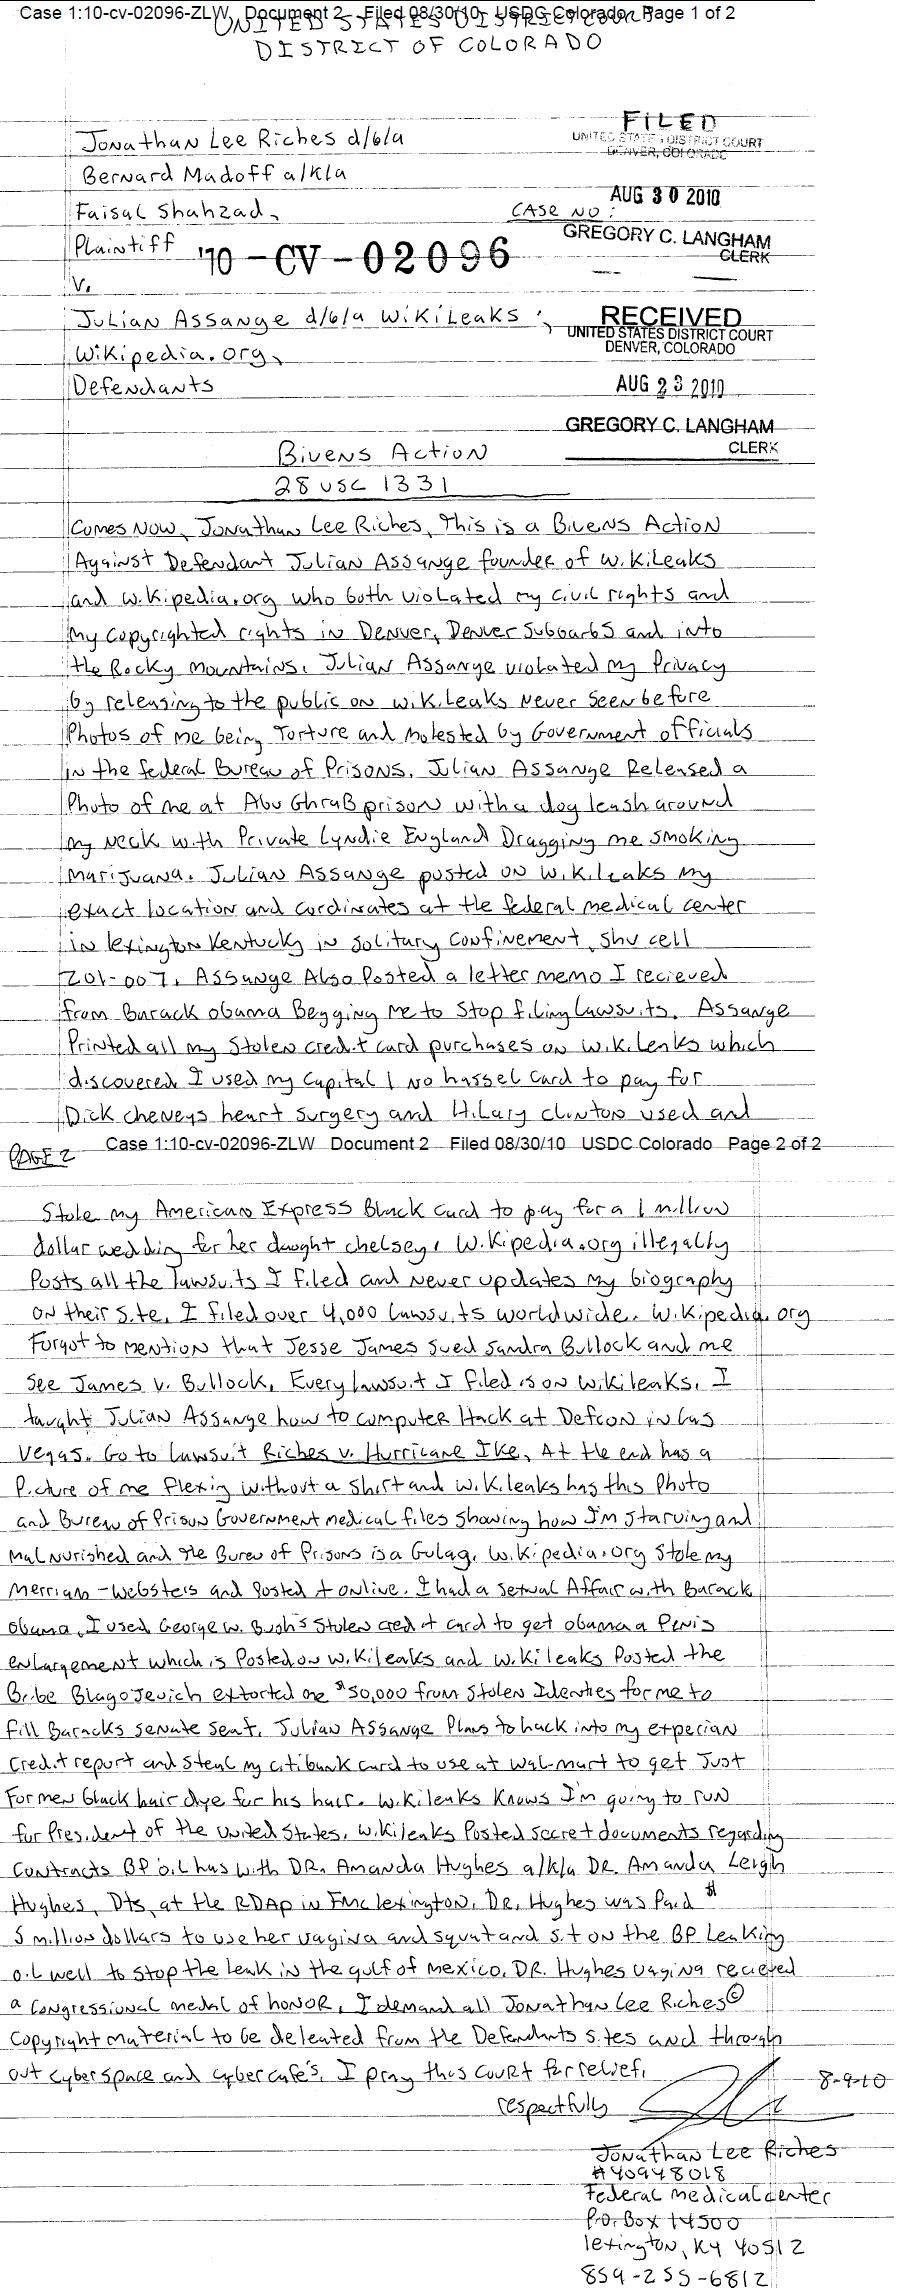 Case 1:10-cv-02096-ZLW Document 2 Filed 08/30/10 USDC Colorado Page 1 of 2
UNITED STATES DISTRICT COURT
DISTRICT OF COLORADO
FILED
UNITED STATES DISTRICT COURT
DENVER, COLORADO
Jonathan Lee Riches d/b/a
Bernard Madoff a/k/a
AUG 30 2010
Faisal Shahzad,
CASE NO:
GREGORY C. LANGHAM
CLERK
Plaintiff
'10-CV-02096
V.
Julian Assange d/b/a WikiLeaks ;
RECEIVED
UNITED STATES DISTRICT COURT
DENVER, COLORADO
Wikipedia.org,
Defendants
AUG 23 2010
GREGORY C. LANGHAM
CLERK
Bivens Action
28 USC 1331
Comes Now, Jonathan Lee Riches, This is a Bivens Action
Against Defendant Julian Assange founder of Wikileaks
and Wikipedia.org who both violated my civil rights and
my copyrighted rights in Denver, Denver Subbarbs and into
the Rocky mountains. Julian Assange violated my Privacy
by releasing to the public on wikileaks Never Seen before
Photos of me being Torture and Molested by Government officials
in the federal Bureau of Prisons. Julian Assange Released a
Photo of me at Abu Ghrab prison with a dog leash around
my neck with Private Lyndie England Dragging me smoking
Marijuana. Julian Assange posted on Wikileaks my
exact location and cordinates at the federal medical center
in lexington Kentucky in solitary confinement, shu cell
Z01-007. Assange Also Posted a letter memo I recieved
from Barack obama Begging me to Stop filing lawsuits. Assange
Printed all my Stolen credit card purchases on Wikileaks which
discovered I used my Capital 1 No hassel Card to pay for
Dick cheneys heart surgery and Hilary clinton used and
Case 1:10-cv-02096-ZLW Document 2 Filed 08/30/10 USDC Colorado Page 2 of 2
PAGE 2
Stole my American Express Black card to pay for a 1 million
dollar wedding for her daught chelsey. Wikipedia.org illegally
Posts all the lawsuits I filed and never updates my biography
on their site. I filed over 4,000 lawsuits worldwide. Wikipedia.org
Forgot to mention that Jesse James sued Sandra Bullock and me
See James v. Bullock. Every lawsuit I filed is on Wikileaks. I
taught Julian Assange how to computer Hack at Defcon in Las
Vegas. Go to Lawsuit Riches v. Hurricane Ike, At the end has a
Picture of me flexing without a shirt and Wikileaks has this Photo
and Burew of Prison Government medical files showing how I'm starving and
malnurished and the Bureu of Prisons is a Gulag. Wikipedia.org stole my
Merriam-Websters and Posted it online. I had a sexual Affair with Barack
Obama. I used George W. Bush's stolen credit card to get Obama a Penis
enlargement which is Posted on Wikileaks and Wikileaks Posted the
Bribe Blagojevich extorted me $50,000 from Stolen Identies for me to
fill Baracks senate seat. Julian Assange Plans to hack into my experian
credit report and steal my citibank card to use at Wal-mart to get Just
For men black hair dye for his hair. Wikileaks Knows I'm going to run
for President of the United States. Wikileaks Posted secret documents regarding
Contracts BP oil has with DR. Amanda Hughes a/k/a DR. Amanda Leigh
Hughes, Dts, at the RDAP in FMC lexington. DR. Hughes was Paid $
5 million dollars to use her vagina and squat and sit on the BP Leaking
oil well to stop the leak in the gulf of mexico. DR. Hughes vagina recieved
a congressional medal of honor. I demand all Jonathan Lee Riches©
Copyright material to be deleated from the Defendants sites and through
out cyberspace and cybercafe's. I pray this court for relief.
8-9-10
respectfully
Jonathan Lee Riches
#40948018
Federal medical center
P.O. Box 14500
lexington, KY 40512
859-255-6812